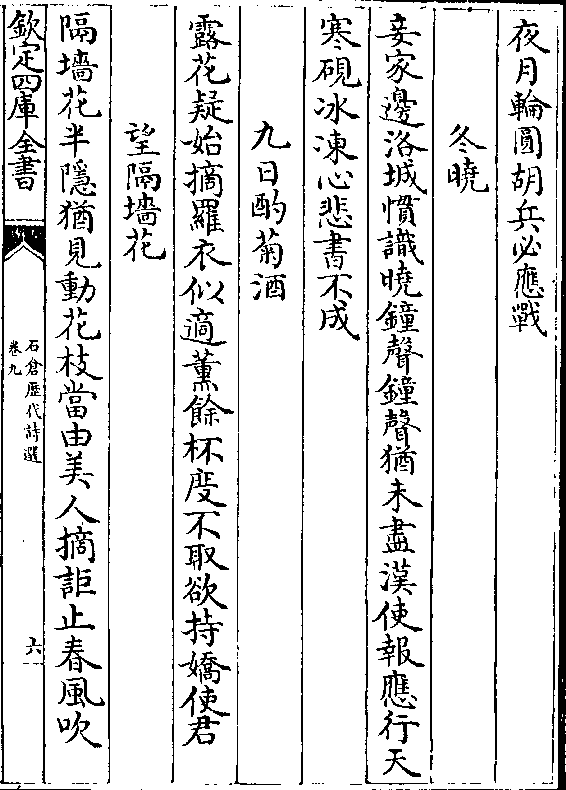 夜月輪圓胡兵必應戰
冬曉
妾家邊洛城慣識曉鐘聲鐘聲猶未盡漢使報應行天
寒硯冰凍心悲書不成
九日酌菊酒
露花疑始摘羅衣似適薰餘杯度不取欲持嬌使君
望隔墻花
隔墻花半隱猶見動花枝當由美人摘詎止春風吹
欽定四庫全書
石倉歷代詩選
卷九
六